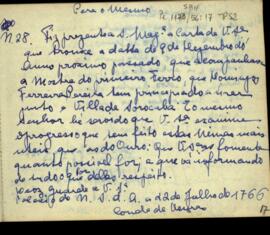 Para o Mesmo
N 28. Fiz prezente a S. Mag.e a Carta de V. S.a
que trouxe a datta de 9 de Dezembro do
Anno proximo passado, que acompanhava
a Mostra do primeiro Ferro, que Domingos
Ferreira Pereira tem principiado a tirar em
junto a Villa de Sorocaba. E o mesmo
Senhor he servido que V. S.a examine
o progresso que tem feito estas Minas mais
uteis que as do Ouro: Que V. S.a as fomente
quanto possivel for, e que vá informando
de tudo o que a elles respeito.
Deos guarde a V. S.a
N. S. d. A. a 22 de Julho de 1766
Conde de Oeyras
17